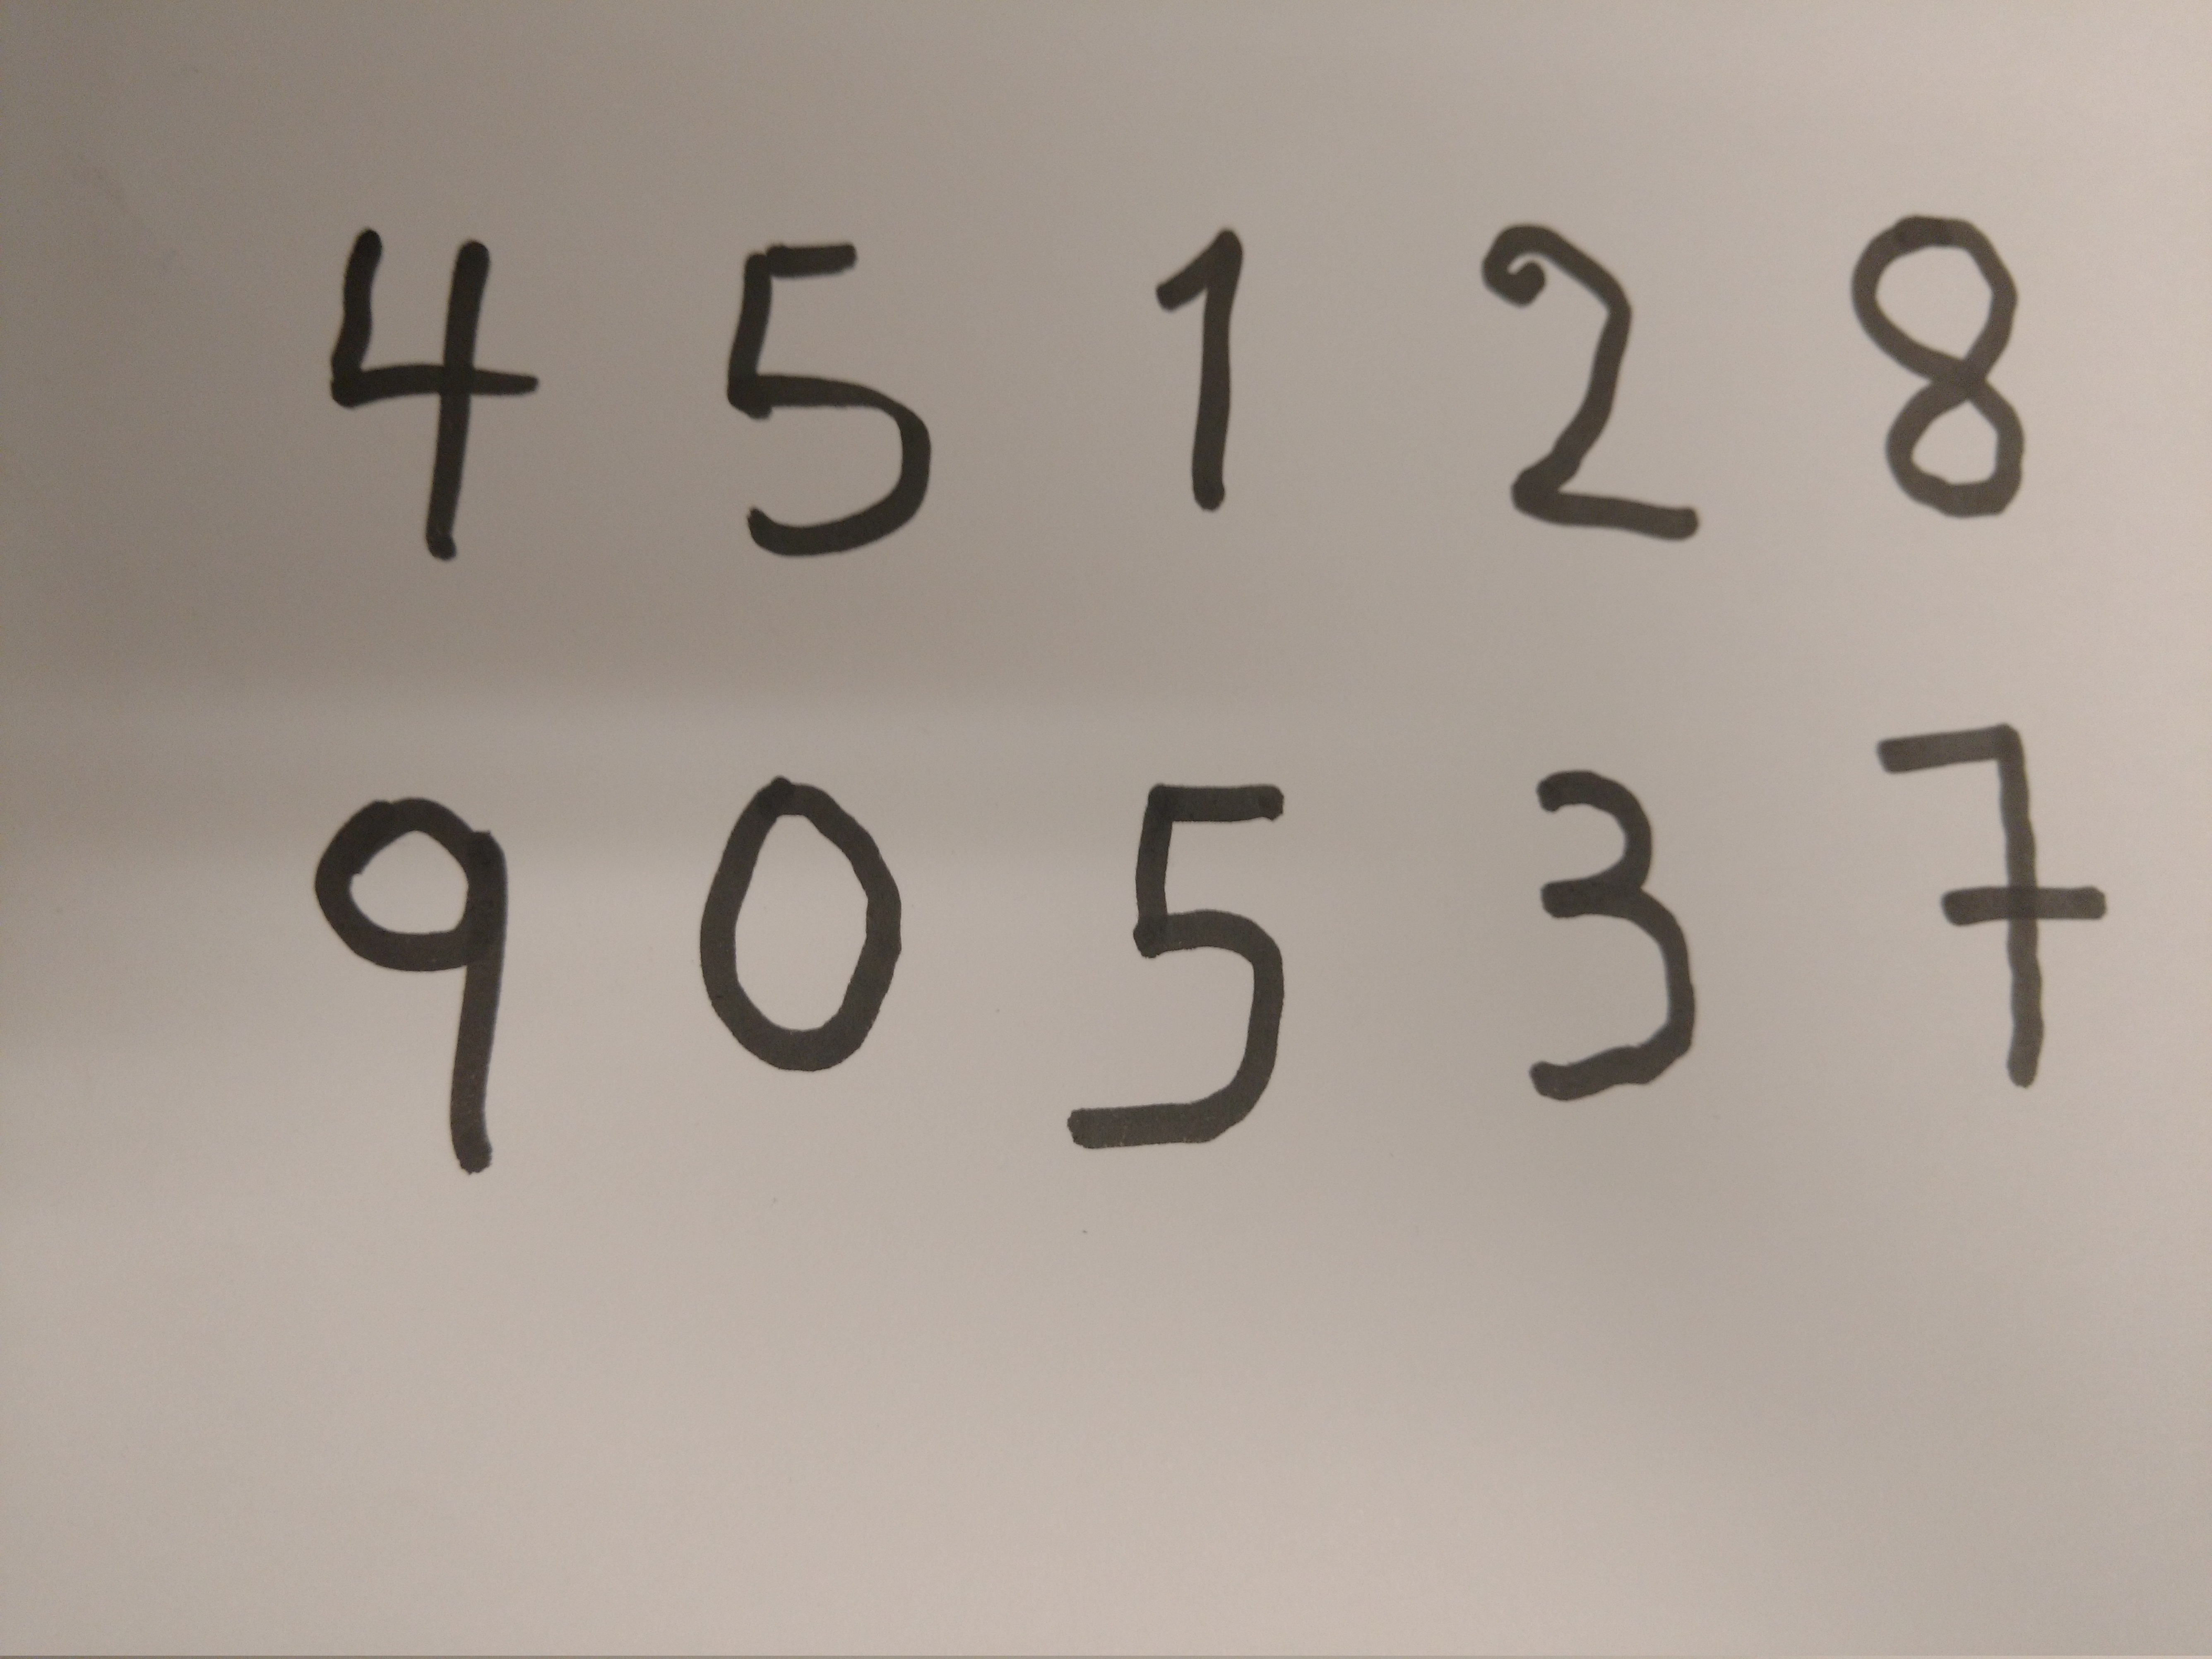 4 5 1 2 8
9 0 5 3 7